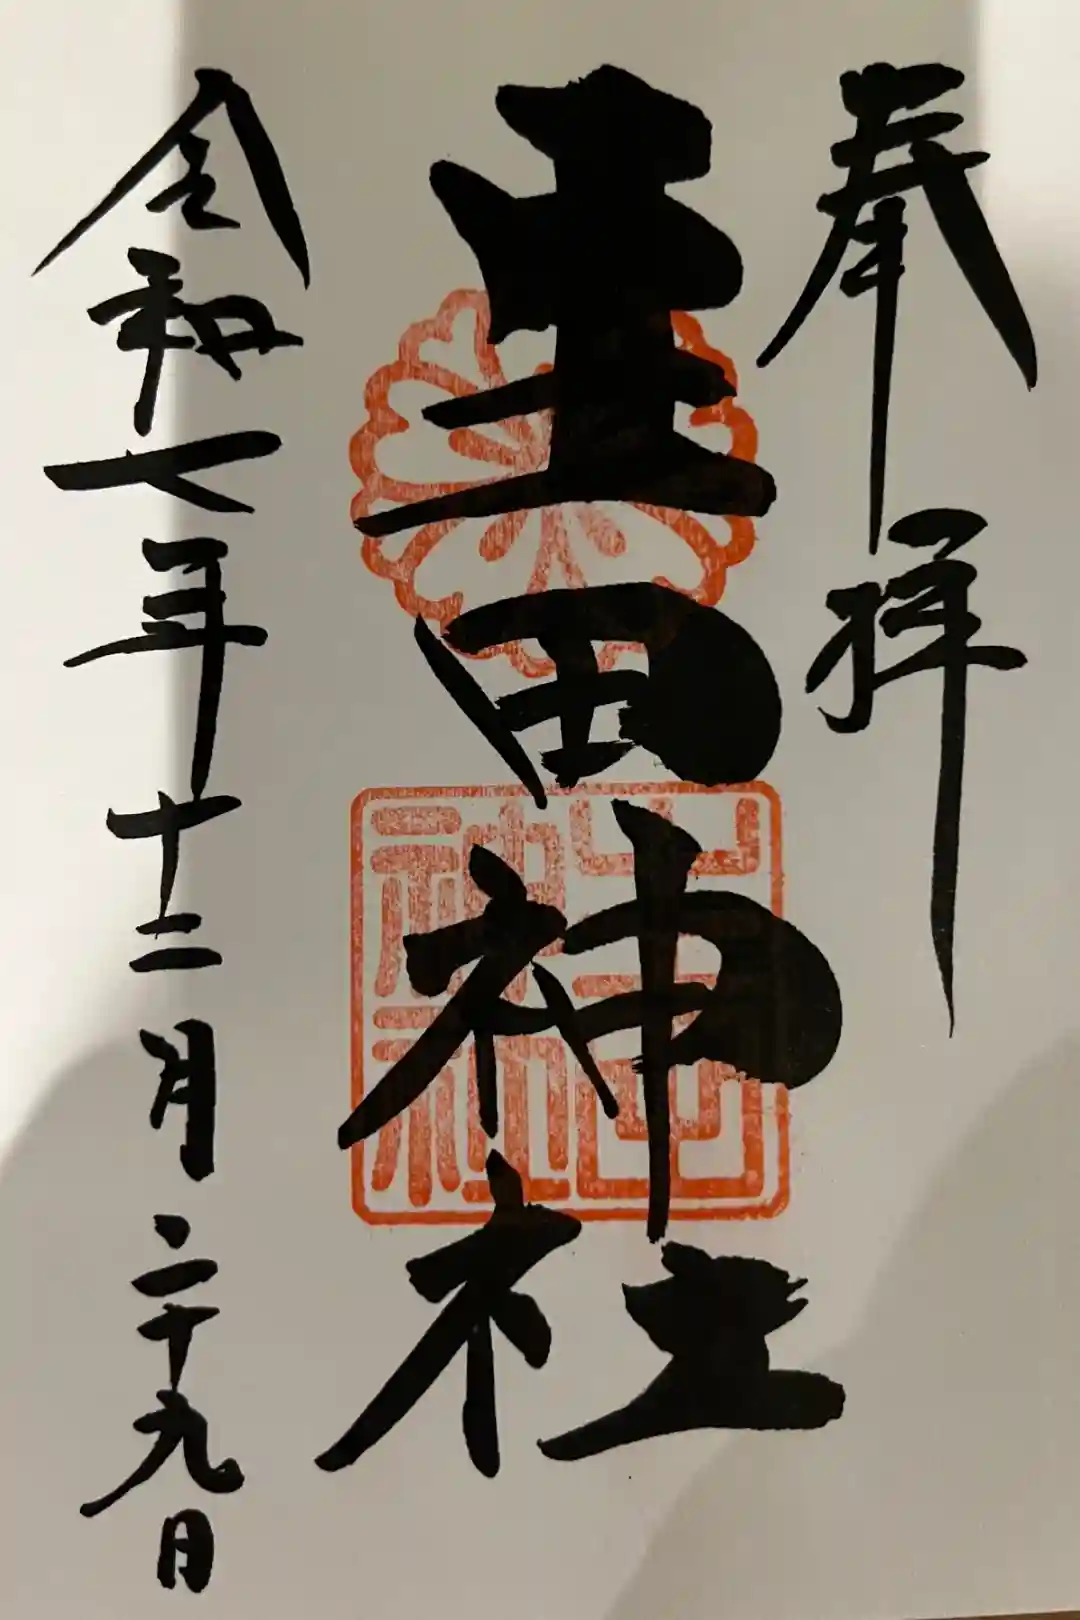 奉拝
生田神社
令和七年十二月二十九日
生田
神社